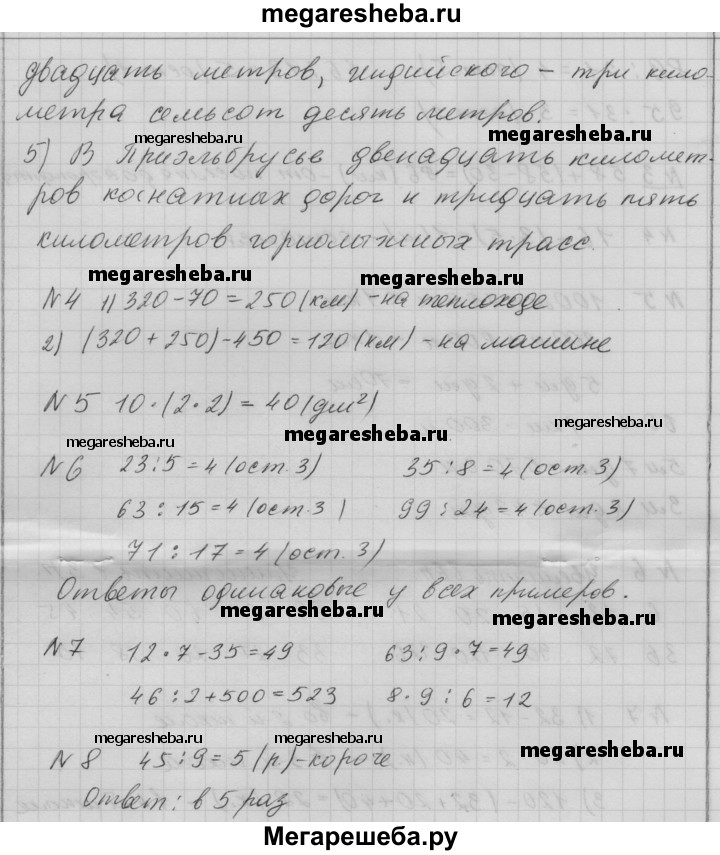 megaresheba.ru
двадцать метров, индийского – три кило-
метра семьсот десять метров.
megaresheba.ru
megaresheba.ru
5) В Приэльбрусье двенадцать километ-
ров канатных дорог и тридцать пять
километров горнолыжных трасс.
megaresheba.ru
megaresheba.ru
№4 1) 320-70=250(км) -на теплоходе
2) (320+250)-450=120(км) -на машине
№5 10·(2·2)=40(дм²)
megaresheba.ru
megaresheba.ru
№6 23:5=4(ост.3) 35:8=4(ост.3)
megaresheba.ru
63:15=4(ост.3) 99:24=4(ост.3)
megaresheba.ru
71:17=4(ост.3)
Ответы одинаковые у всех примеров.
megaresheba.ru
megaresheba.ru
№7 12·7-35=49 63:9·7=49
megaresheba.ru
46:2+500=523 8·9:6=12
megaresheba.ru
megaresheba.ru
№8 45:9=5(р)-короче
megaresheba.ru
Ответ: в 5 раз
megaresheba.ru
Мегарешеба.ру